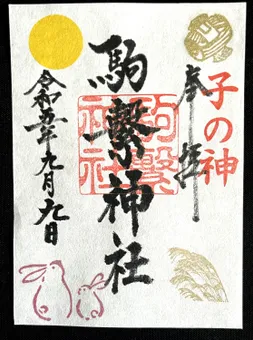 子の神
奉拝
駒繋神社
駒繋神社
令和五年九月九日